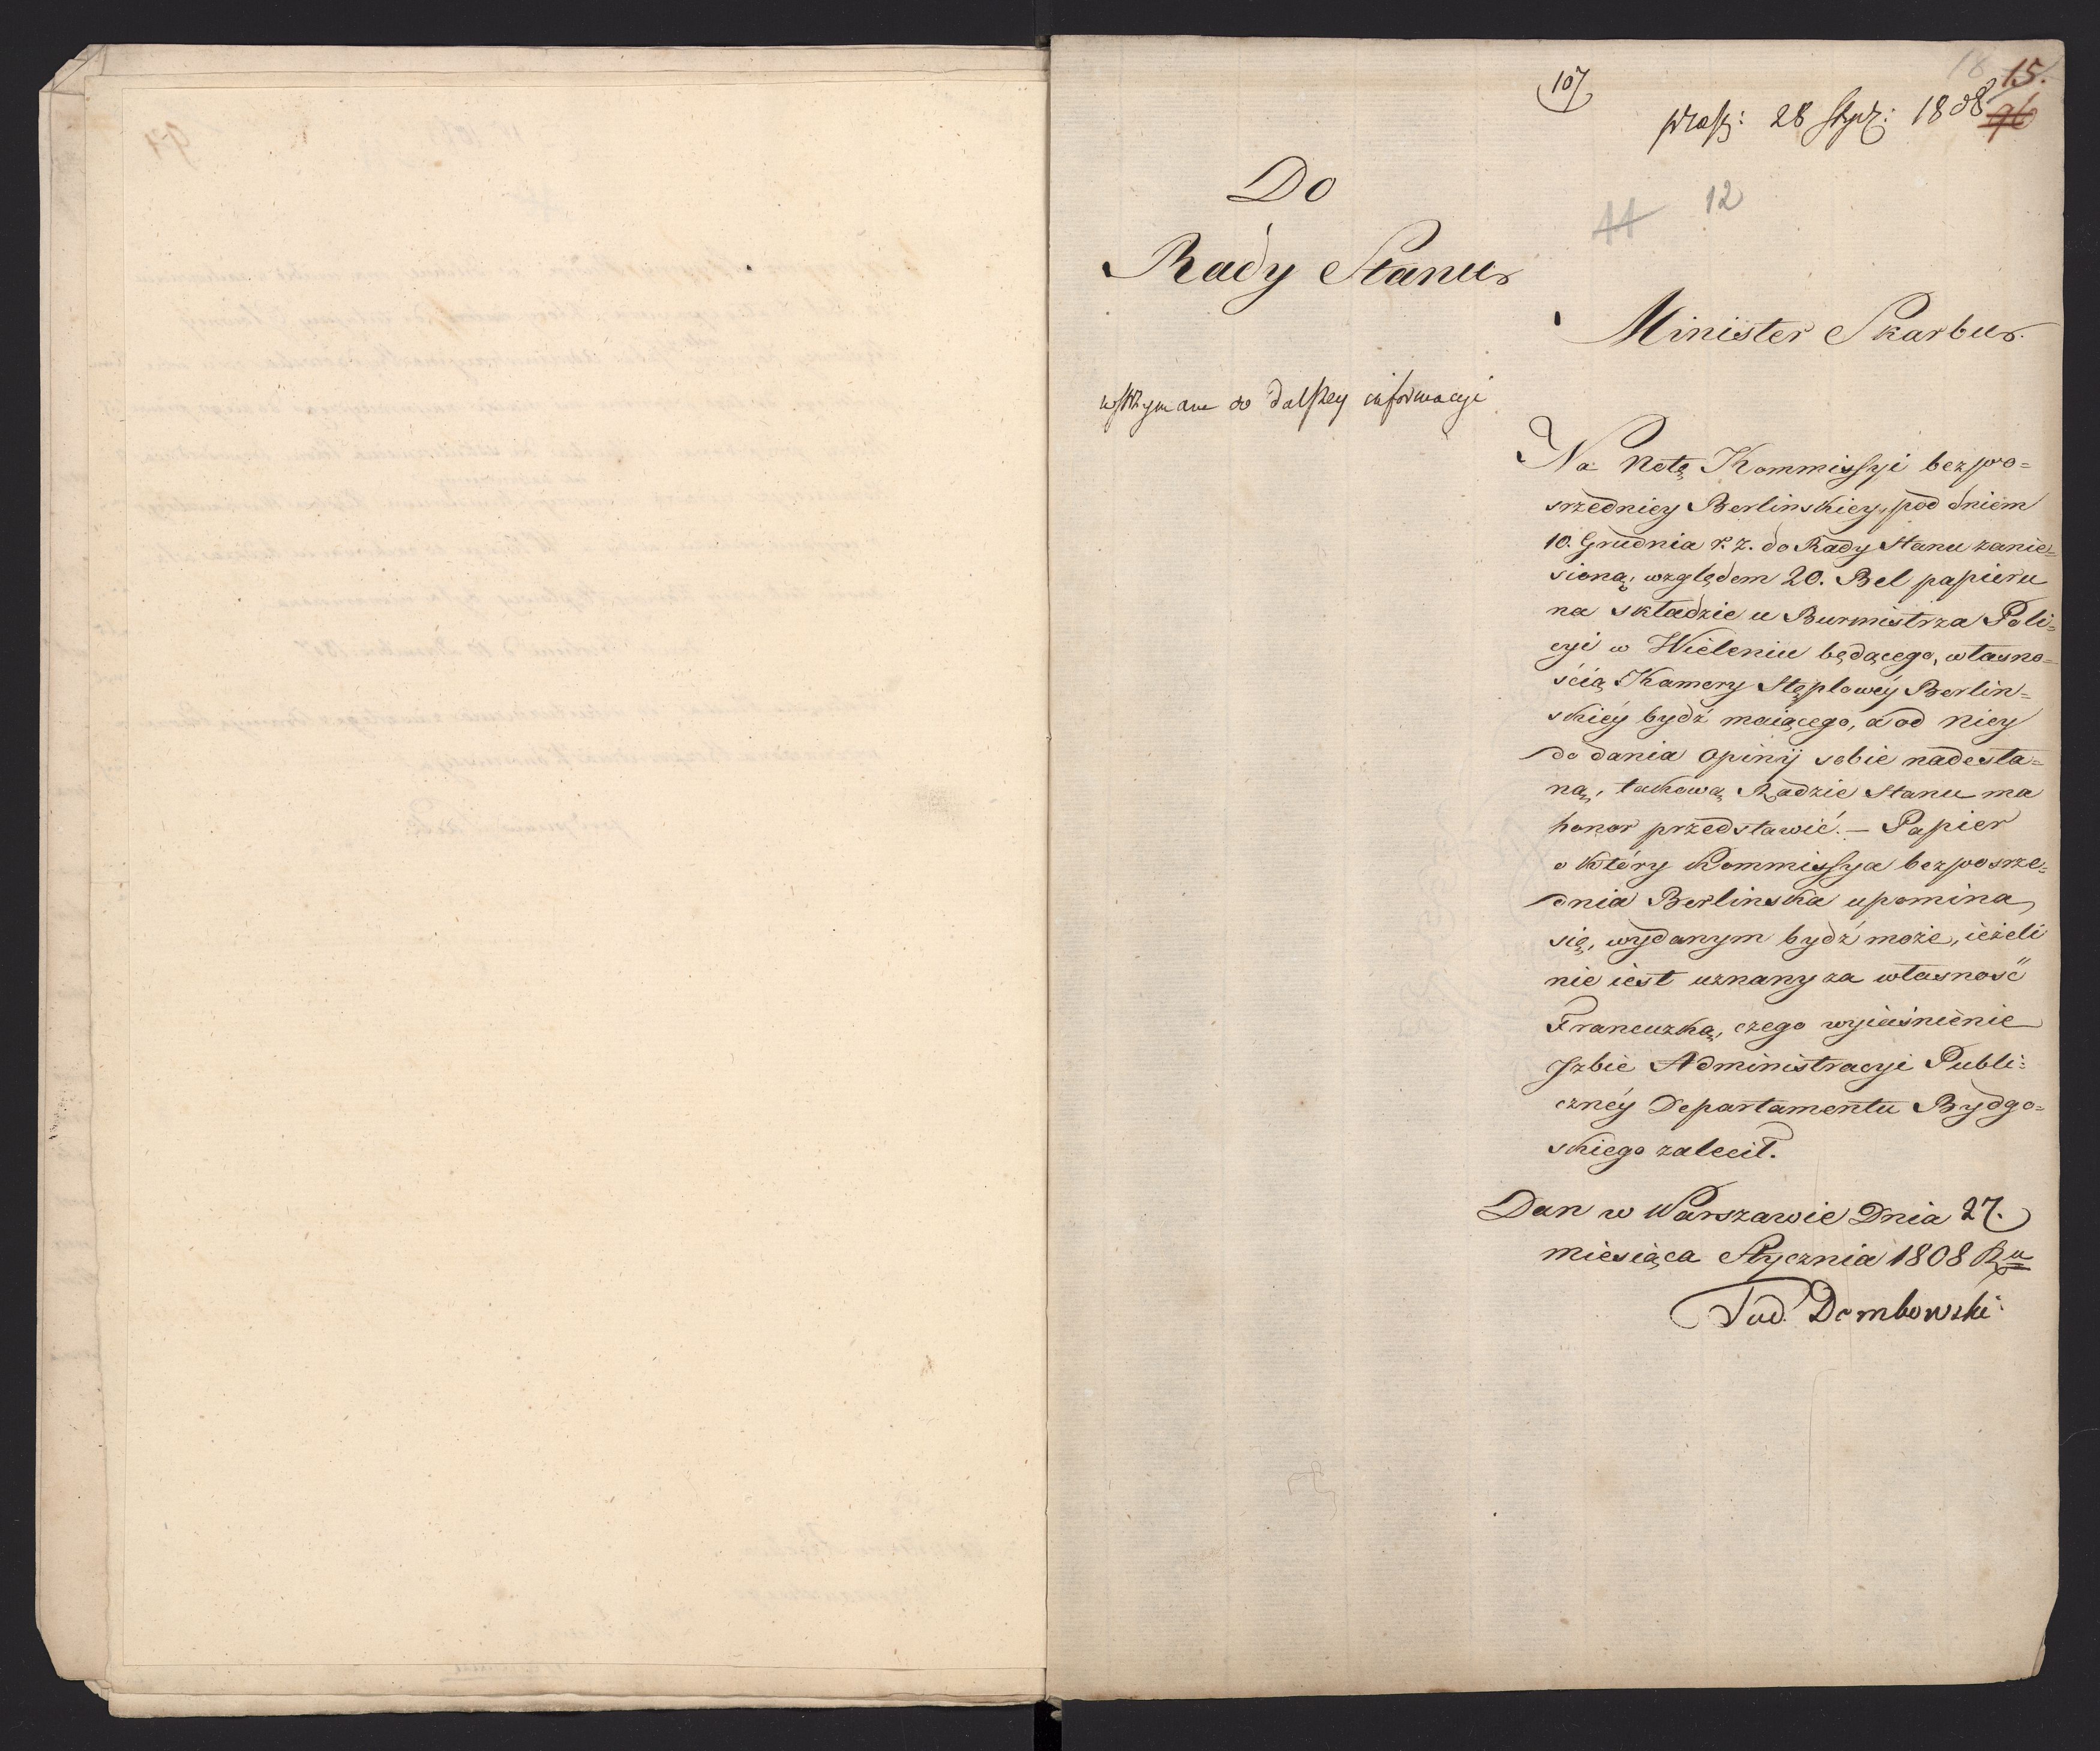 107
15.
96
prass: 28 Stycz: 1808
11 12
Do
Rady Stanu
Minister Skarbu
wstrzymane do dalszey informacyi
Na Notę Kommissyi bezpo=
srzedniey Berlinskiey, pod dniem
10. Grudnia r. z. do Rady Stanu zanie=
sioną, względem 20. Bel papieru
na składzie u Burmistrza Poli=
cyi w Wieleniu będącego, własno=
ścią Kamery Stęplowéy Berlin=
skiéy bydź maiącego, a od niey
do dania opinÿ sobie nadesła=
ną, takową Radzie Stanu ma
honor przedstawić. – Papier
o który Kommissya bezposrze=
dnia Berlinska upomina
się, wydanym bydź może, ieżeli
nie iest uznany za własność
Francuzką, czego wyiaśnienie
Izbie Administracyi Publi=
cznéy Departamentu Bydgo=
skiego zalecił.
Dan w Warszawie Dnia 27.
miesiąca Stycznia 1808 Ru
Dembowski